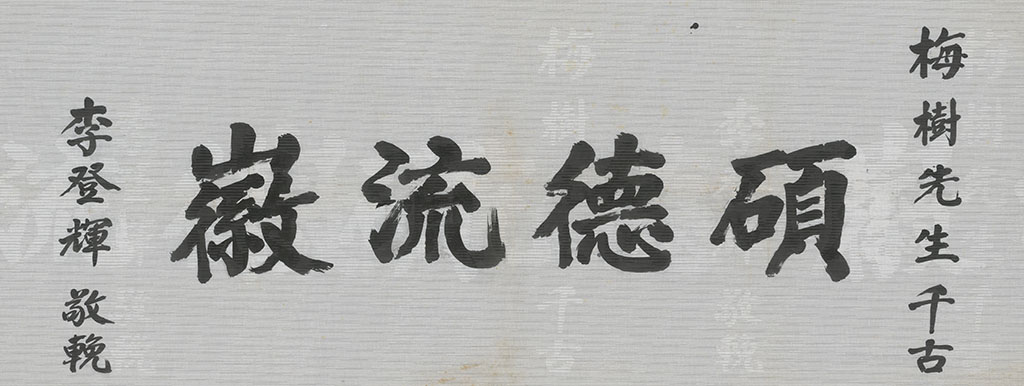 梅樹先生千古
碩德流徽
李登輝 敬輓